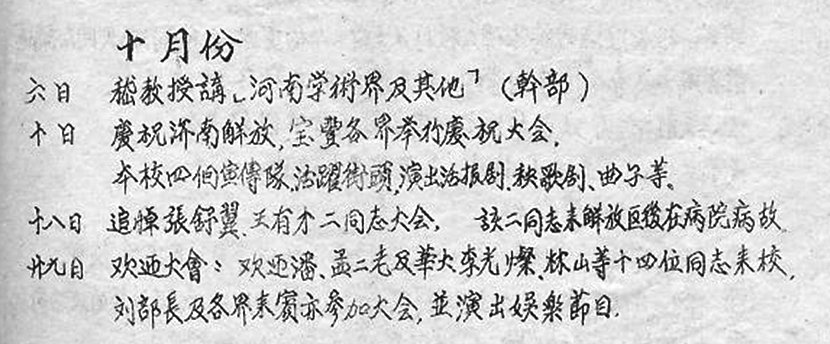 十月份
六日 嵇教授講「河南学術界及其他」(幹部)
十日 慶祝济南解放,宝豐各界举行慶祝大会,
本校四個宣傳隊,活躍街頭,演出活报剧、秧歌剧、曲子等、
十八日 追悼張舒翼、王有才二同志大会, 該二同志来解放区後在病院病故,
廿九日 欢迎大會:欢迎潘、孟二老及華大李光燦、林山等十四位同志来校,
刘部長及各界来賓亦参加大会,並演出娱樂節目.